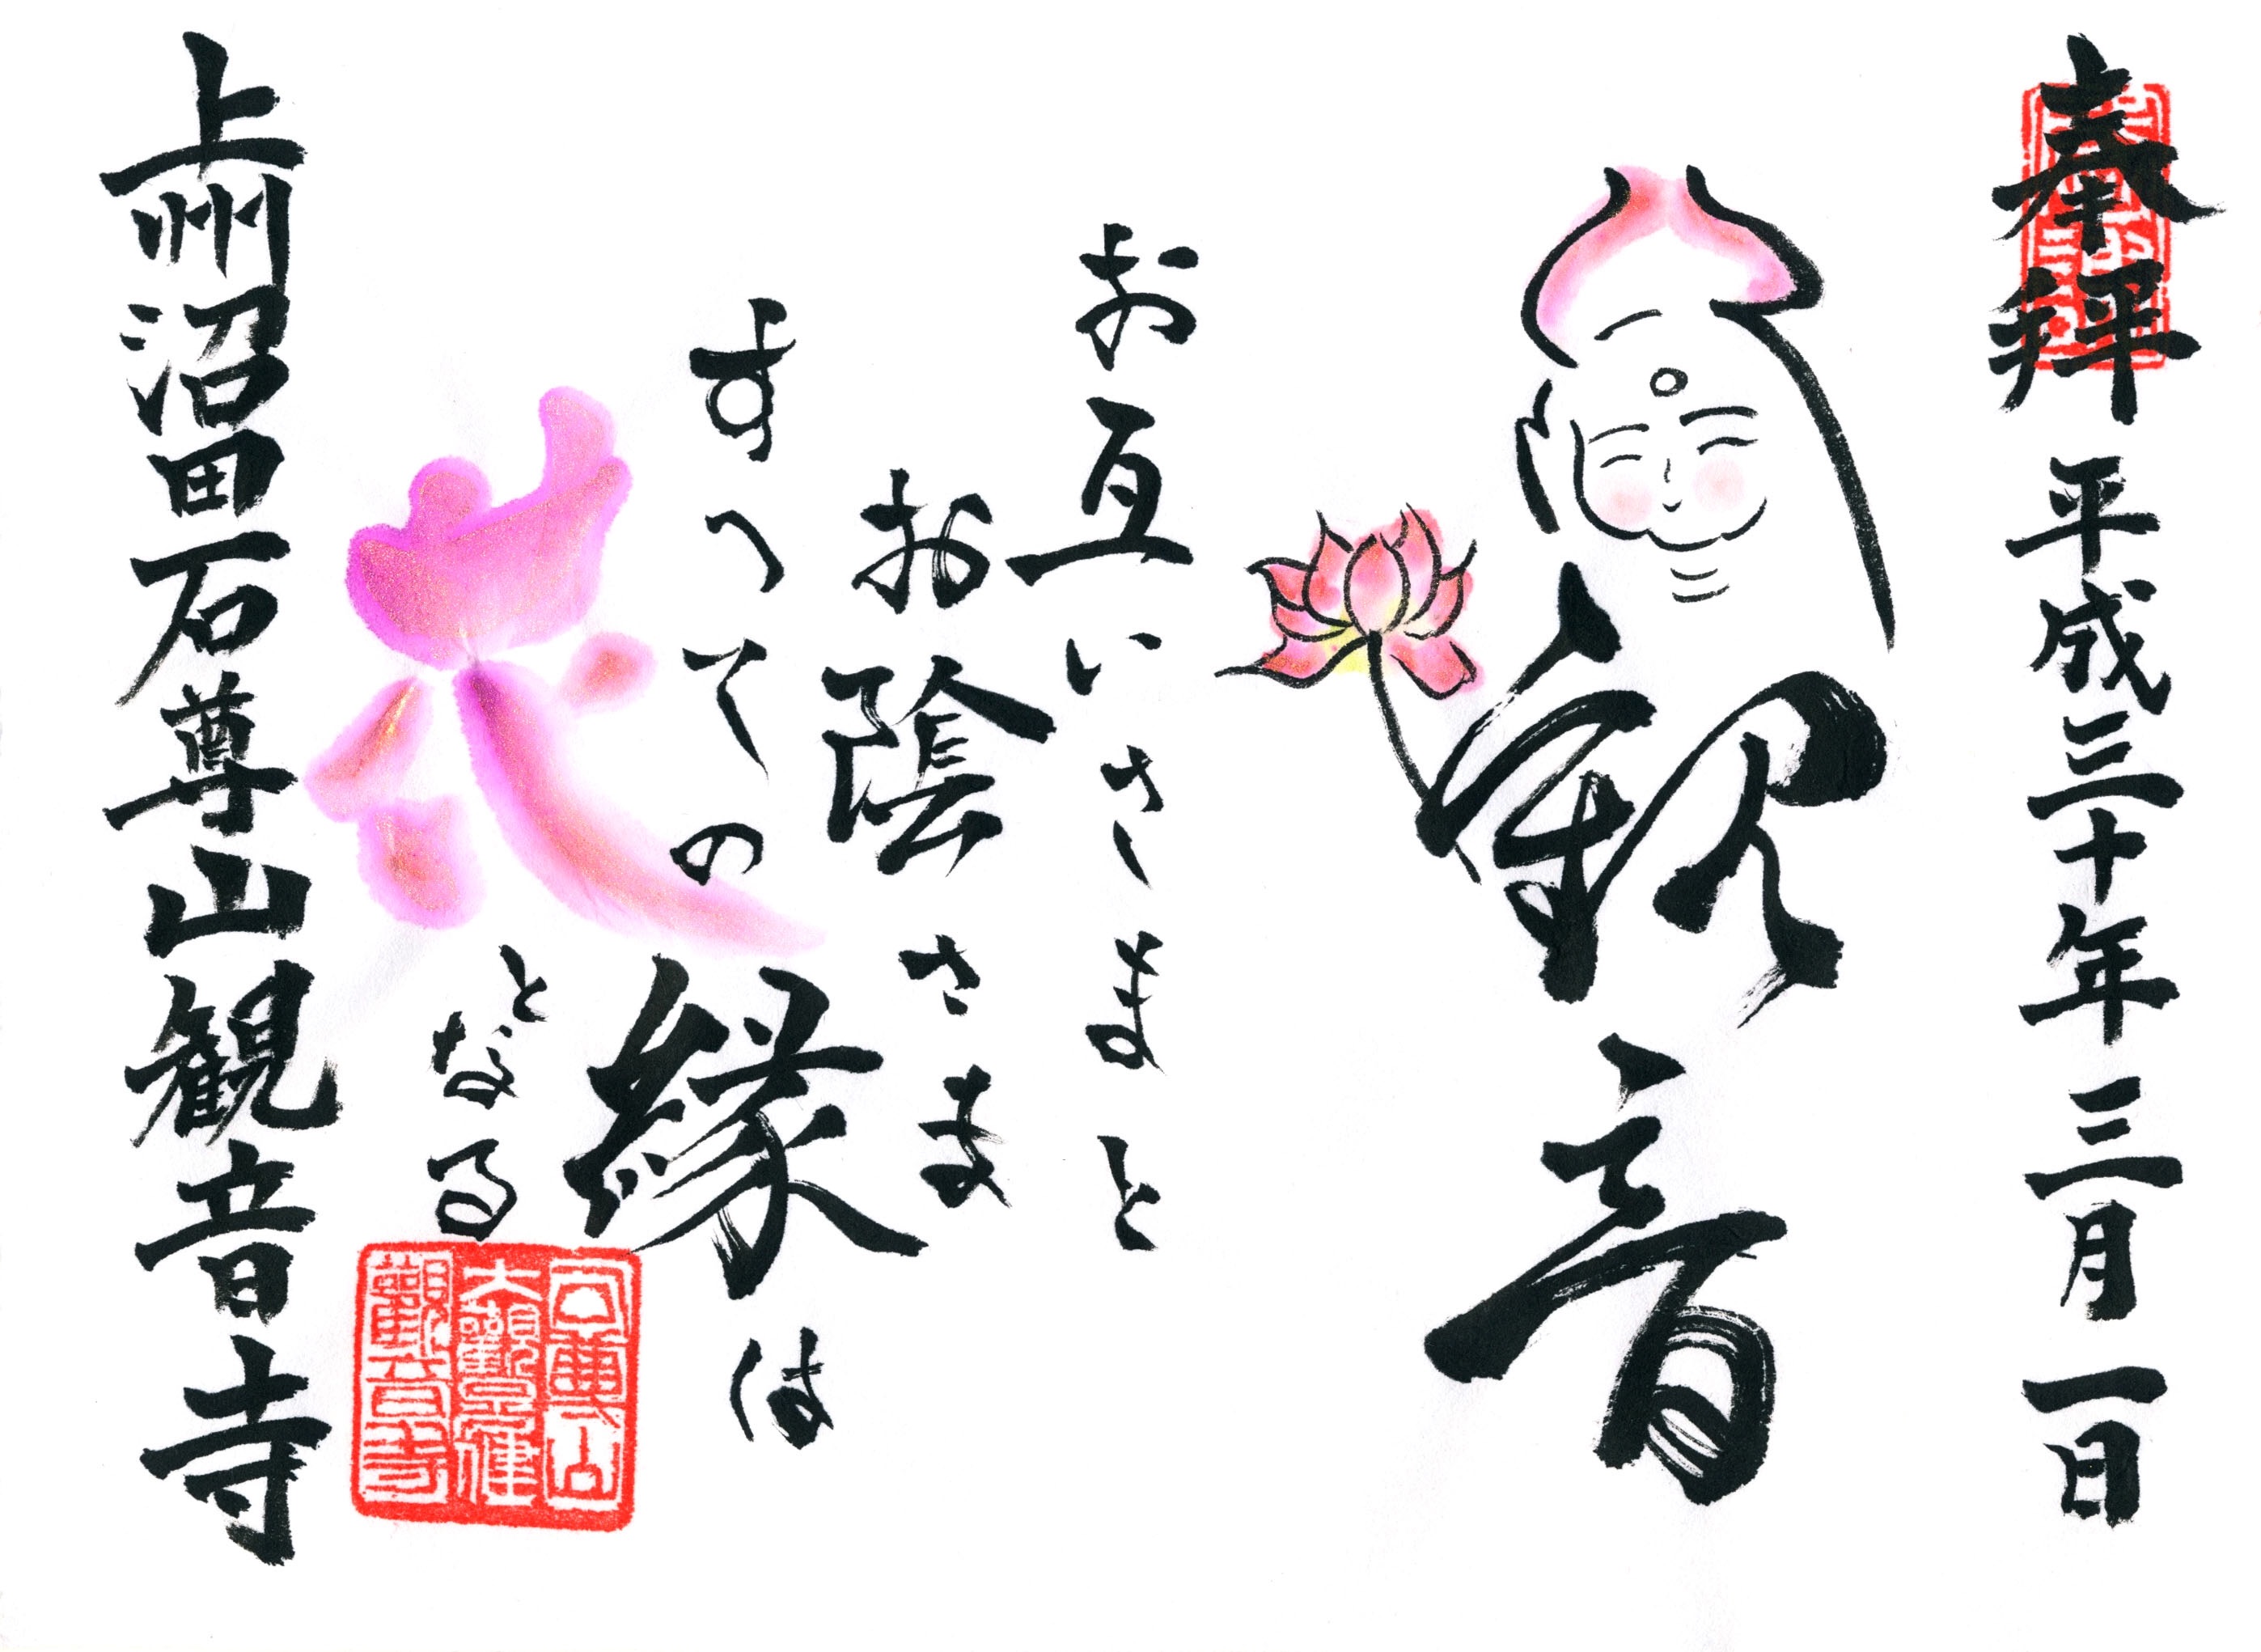 奉拝 平成三十年 三月 一日
観音
お互いさまと
お陰さま
すへての縁は
花となる
上州沼田石尊山観音寺
觀音寺